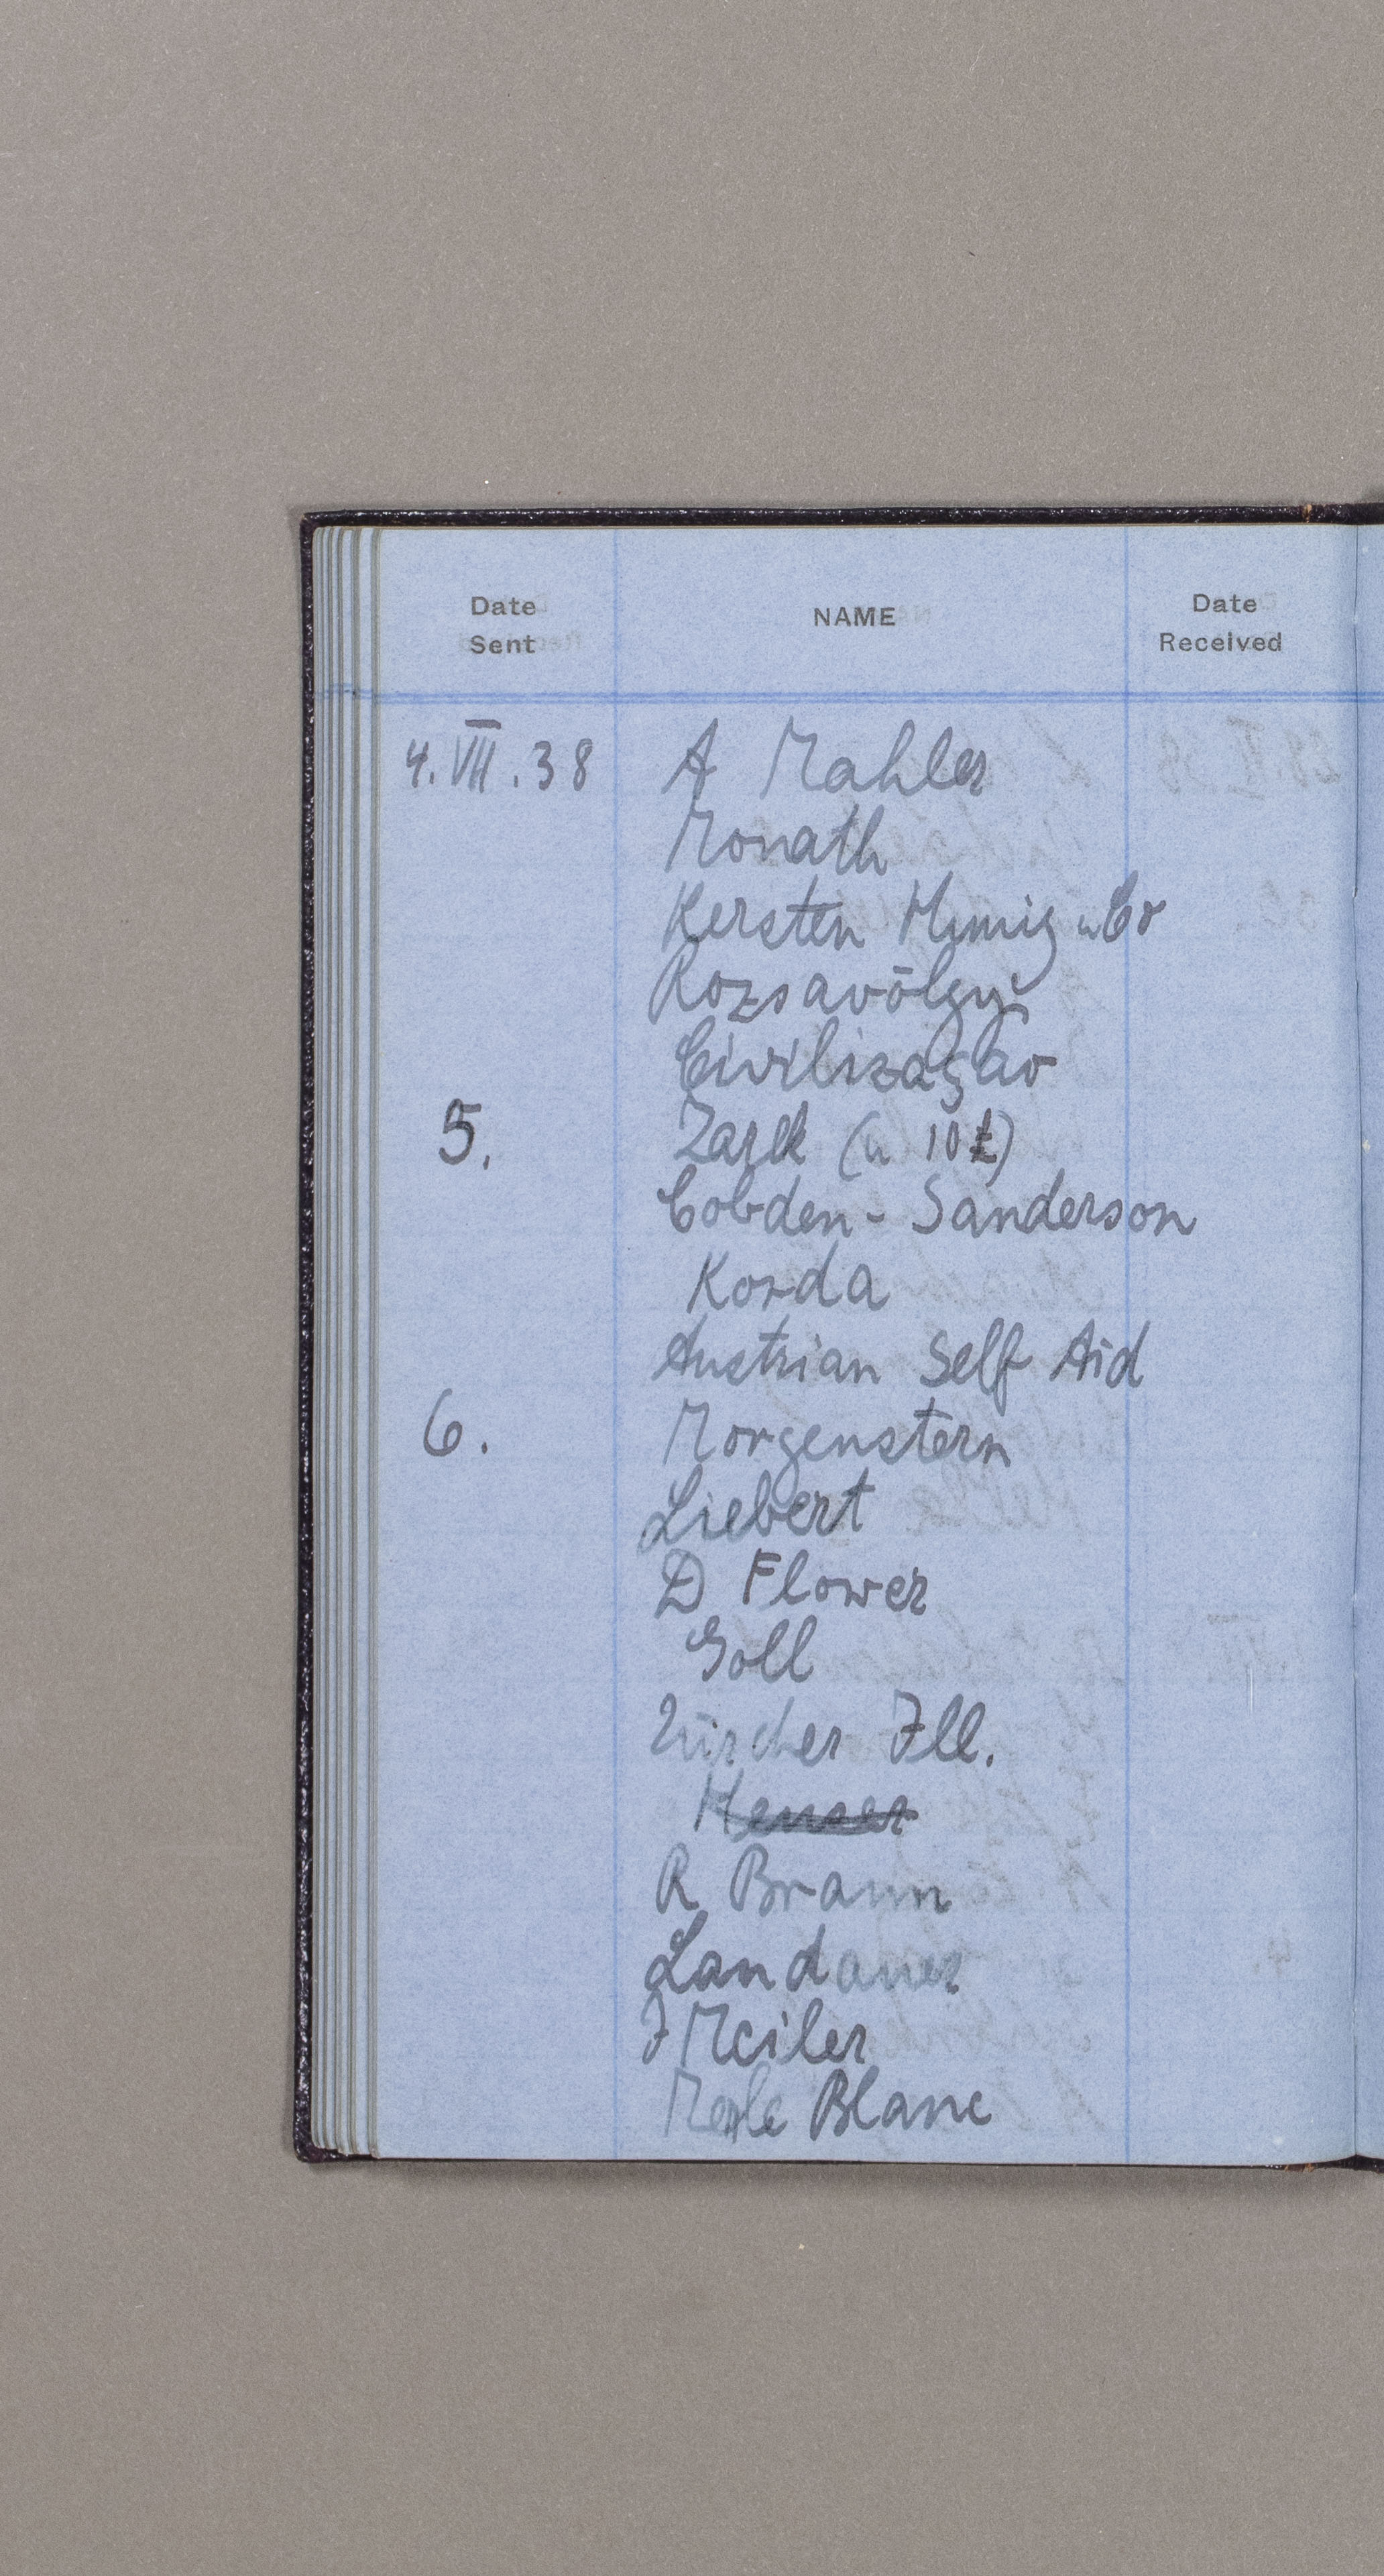 Date Sent NAME Date Received
4. VIII. 38 A Mahler
Monath
Kersten u Co
Rozsavölgyi
Civilizaçao
5. Zarek (u 10 £)
Cobden - Sanderson
Korda
Austrian Self Aid
6. Morgenstern
Liebert
D Flower
Goll
Zürcher Ill.
R Braun
Landauer
J Meiler
Merle Blanc